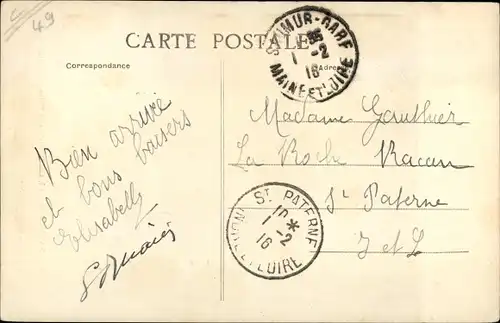 49
CARTE POSTALE
Correspondance
Adres
SAUMUR-GARE
1 -2
16
MAINE-ET-LOIRE
Madame Gauthier
La Roche Racan
St Paterne
I et L
Bien arrivée
et bons baisers
Elisabeth
ST PATERNE
1 -2
16
INDRE-ET-LOIRE